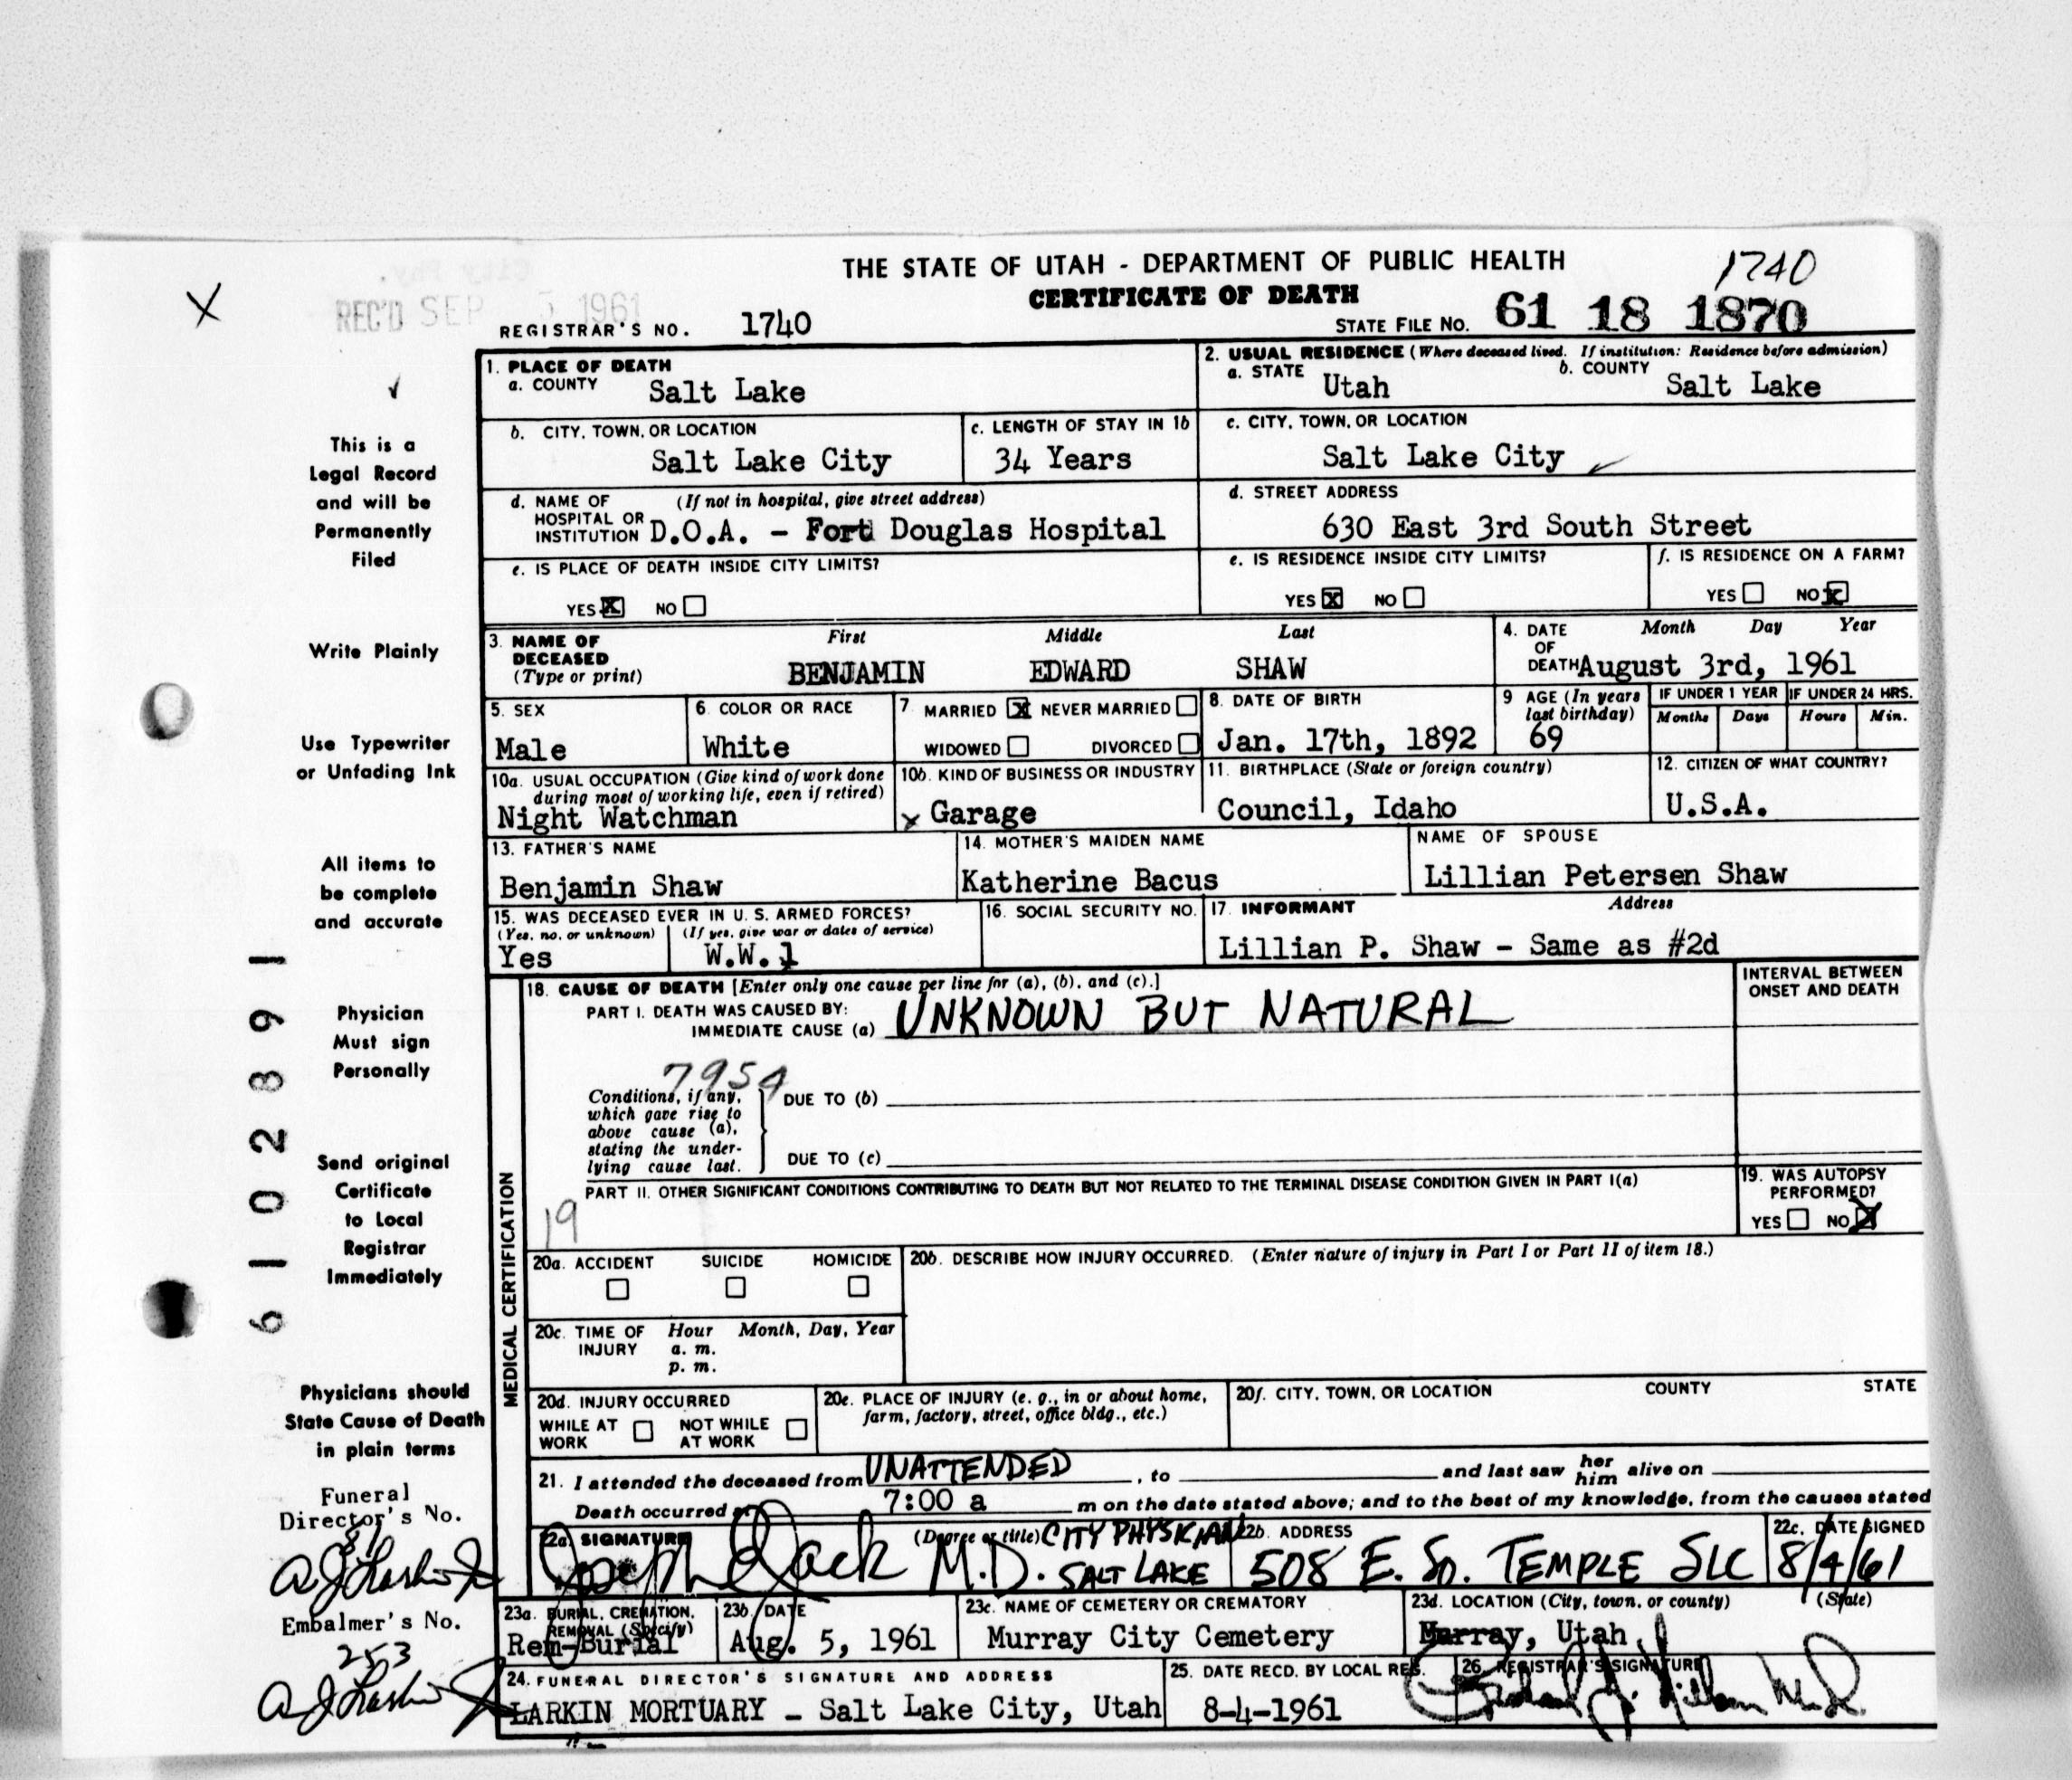 THE STATE OF UTAH - DEPARTMENT OF PUBLIC HEALTH
1740
CERTIFICATE OF DEATH
REC'D SEP 5 1961
REGISTRAR'S NO. 1740
STATE FILE NO. 61 18 1870
1. PLACE OF DEATH
a. COUNTY Salt Lake
2. USUAL RESIDENCE (Where deceased lived. If institution: Residence before admission)
a. STATE Utah b. COUNTY Salt Lake
b. CITY, TOWN, OR LOCATION Salt Lake City
c. LENGTH OF STAY IN 1b 34 Years
c. CITY, TOWN, OR LOCATION Salt Lake City
d. NAME OF HOSPITAL OR INSTITUTION (If not in hospital, give street address) D.O.A. - Fort Douglas Hospital
d. STREET ADDRESS 630 East 3rd South Street
e. IS PLACE OF DEATH INSIDE CITY LIMITS?
YES X NO
e. IS RESIDENCE INSIDE CITY LIMITS?
YES X NO
f. IS RESIDENCE ON A FARM?
YES NO X
3. NAME OF DECEASED (Type or print)
First Middle Last
BENJAMIN EDWARD SHAW
4. DATE OF DEATH Month Day Year
August 3rd, 1961
5. SEX Male
6. COLOR OR RACE White
7. MARRIED X NEVER MARRIED
WIDOWED DIVORCED
8. DATE OF BIRTH Jan. 17th, 1892
9 AGE (In years last birthday) 69
IF UNDER 1 YEAR Months Days
IF UNDER 24 HRS. Hours Min.
10a. USUAL OCCUPATION (Give kind of work done during most of working life, even if retired)
Night Watchman
10b. KIND OF BUSINESS OR INDUSTRY
x Garage
11. BIRTHPLACE (State or foreign country)
Council, Idaho
12. CITIZEN OF WHAT COUNTRY?
U.S.A.
13. FATHER'S NAME
Benjamin Shaw
14. MOTHER'S MAIDEN NAME
Katherine Bacus
NAME OF SPOUSE
Lillian Petersen Shaw
15. WAS DECEASED EVER IN U. S. ARMED FORCES?
(Yes, no, or unknown) (If yes, give war or dates of service)
Yes W.W.1
16. SOCIAL SECURITY NO.
17. INFORMANT Address
Lillian P. Shaw - Same as #2d
MEDICAL CERTIFICATION
18. CAUSE OF DEATH [Enter only one cause per line for (a), (b), and (c).]
PART I. DEATH WAS CAUSED BY:
IMMEDIATE CAUSE (a) UNKNOWN BUT NATURAL
INTERVAL BETWEEN ONSET AND DEATH
795
Conditions, if any, which gave rise to above cause (a), stating the underlying cause last.
DUE TO (b)
DUE TO (c)
PART II. OTHER SIGNIFICANT CONDITIONS CONTRIBUTING TO DEATH BUT NOT RELATED TO THE TERMINAL DISEASE CONDITION GIVEN IN PART I(a)
19
19. WAS AUTOPSY PERFORMED?
YES NO X
20a. ACCIDENT SUICIDE HOMICIDE
20b. DESCRIBE HOW INJURY OCCURRED. (Enter nature of injury in Part I or Part II of item 18.)
20c. TIME OF INJURY Hour Month, Day, Year
a. m.
p. m.
20d. INJURY OCCURRED
WHILE AT WORK NOT WHILE AT WORK
20e. PLACE OF INJURY (e. g., in or about home, farm, factory, street, office bldg., etc.)
20f. CITY, TOWN, OR LOCATION COUNTY STATE
21. I attended the deceased from UNATTENDED, to and last saw her him alive on
Death occurred at 7:00 a m on the date stated above; and to the best of my knowledge, from the causes stated
22a. SIGNATURE (Degree or title)
Joseph Jack M.D. CITY PHYSICIAN SALT LAKE
22b. ADDRESS
508 E. So. TEMPLE SLC
22c. DATE SIGNED
8/4/61
23a. BURIAL, CREMATION, REMOVAL (Specify)
Rem-Burial
23b. DATE
Aug. 5, 1961
23c. NAME OF CEMETERY OR CREMATORY
Murray City Cemetery
23d. LOCATION (City, town, or county) (State)
Murray, Utah
24. FUNERAL DIRECTOR'S SIGNATURE AND ADDRESS
LARKIN MORTUARY - Salt Lake City, Utah
25. DATE RECD. BY LOCAL REG.
8-4-1961
26. REGISTRAR'S SIGNATURE
X
This is a
Legal Record
and will be
Permanently
Filed
Write Plainly
Use Typewriter
or Unfading Ink
All items to
be complete
and accurate
Physician
Must sign
Personally
Send original
Certificate
to Local
Registrar
Immediately
Physicians should
State Cause of Death
in plain terms
Funeral
Director's No.
81
Embalmer's No.
253
6102891